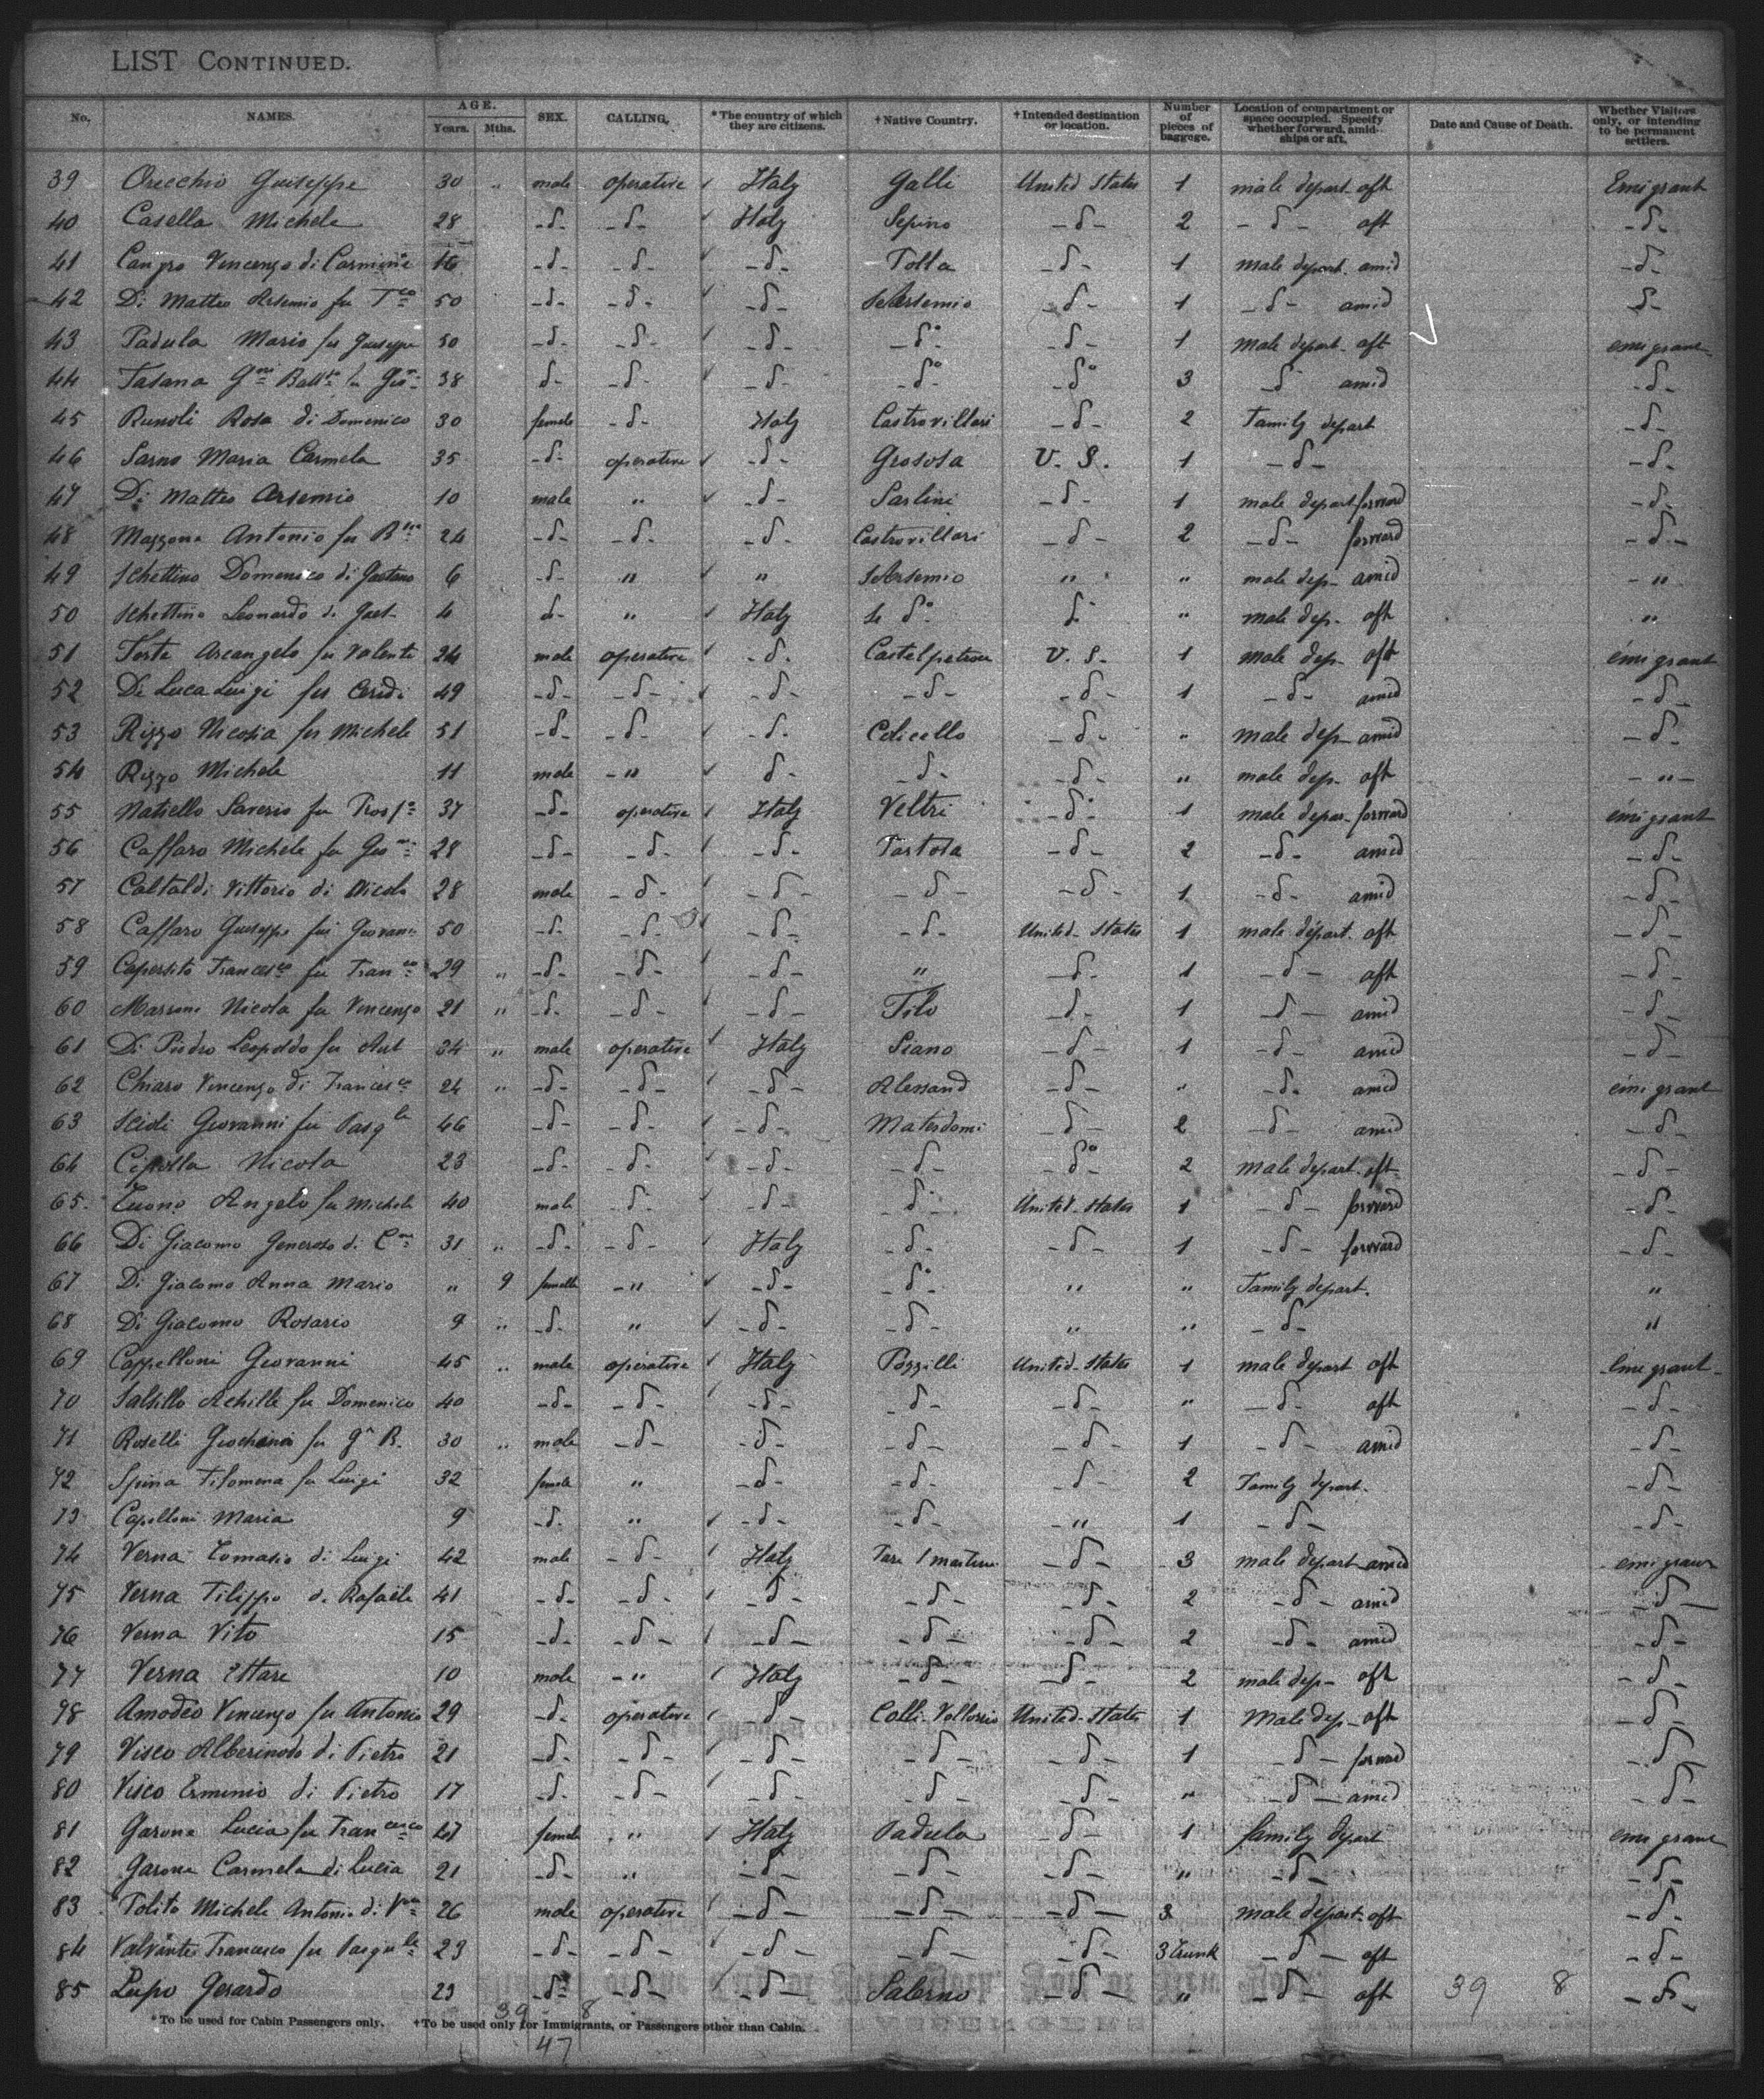 LIST CONTINUED.
No. NAMES. AGE. Years. Mths. SEX. CALLING. *The country of which they are citizens. †Native Country. †Intended destination or location. Number of pieces of baggage. Location of compartment or space occupied. Specify whether forward, amidships or aft. Date and Cause of Death. Whether Visitors only, or intending to be permanent settlers.
39 Orecchio Guiseppe 30 " male operative Italy Galli United States 1 male depart aft Emigrant
40 Casella Michele 28 -d- -d- Italy Sepino -d- 2 -d- aft -d-
41 Vincenzo di Carmine 16 -d- -d- -d- Tolla -d- 1 male depart. amid -d-
42 Di Matteo Arsemio fu 50 -d- -d- -d- -d- 1 -d- amid -d-
43 Padula Mario fu Guiseppe 50 -d- -d- -d- -d- -d- 1 male depart. aft emigrant
44 38 d- -d- -d- -d- -d- 3 -d- amid -d-
45 Rosa di Domenico 30 female -d- Italy Castrovillari -d- 2 Family depart -d-
46 Sarno Maria Carmela 35 -d- operative -d- Grososa U. S. 1 -d- -d-
47 Di Matteo Arsemio 10 male " -d- Sarlini -d- 1 male depart forward -d-
48 Mazzona Antonio fu 24 -d- -d- -d- Castrovillari -d- 2 -d- forward -d-
49 Schettino Domenico di Gaetano 6 -d- " " SArsemio " " male dep- amid - "
50 Schettino Leonardo di Gaet- 4 d- " Italy d- " male dep- aft "
51 Testa Arcangelo fu Valenti 24 male operative -d- U. S. 1 male dep- aft émigrant
52 De Luca Luigi fu 49 -d- -d- -d- -d- -d- 1 -d- amid -d-
53 Rizzo Nicosia fu Michele 51 -d- -d- -d- Colicello -d- " male dep- amid -d-
54 Rizzo Michele 11 male - " d- -d- -d- " male dep- aft - " -
55 Natiello Saverio fu 37 -d- operative Italy Veltri -d- 1 male depar- forward émigrant
56 Caffaro Michele fu 28 -d- -d- -d- Tortola -d- 2 -d- amid -d-
57 Cataldi Vittorio di Nicolo 28 male -d- -d- -d- -d- 1 -d- amid -d-
58 Caffaro Guiseppe fu Giovanni 50 -d- -d- -d- -d- United States 1 male départ. aft -d-
59 Francesco fu 29 " -d- -d- -d- " -d- 1 -d- aft -d-
60 Nicola fu Vincenzo 21 " -d- -d- -d- Tito -d- 1 -d- amid -d-
61 Leopoldo fu Ant 24 " male operative Italy Siano -d- 1 -d- amid -d-
62 Chiaro Vincenzo di Francesco 24 " -d- -d- -d- Alessand -d- " -d- amid émigrant
63 Giovanni fu Pasqle 46 -d- -d- -d- Materdomi -d- 2 -d- amid -d-
64 Cipolla Nicola 23 -d- -d- -d- -d- -d- 2 male depart. aft -d-
65. Angelo fu Michele 40 male -d- -d- -d- United States 1 -d- forward -d-
66 Di Giacomo Generoso di 31 " -d- -d- Italy -d- -d- 1 -d- forward -d-
67 Di Giacomo Anna Mario " 9 female - " -d- d- " " Family depart. "
68 Di Giacomo Rosario 9 " -d- " -d- -d- " " -d- "
69 Cappelloni Giovanni 45 " male operative Italy Pozzilli United States 1 male depart aft Emigrant
70 Salsillo Achille fu Domenico 40 -d- -d- -d- -d- -d- " -d- aft -d-
71 Roselli fu 30 " male -d- -d- -d- -d- 1 -d- amid -d-
72 Spina Filomena fu Luigi 32 female " -d- -d- d- 2 Family depart. -d-
73 Capelloni Maria 9 -d- " -d- -d- - " 1 -d- -d-
74 Verna Tomasio di Luigi 42 male -d- Italy -d- 3 male depart amid emigrant
75 Verna Filippo di Rafaele 41 -d- -d- -d- -d- -d- 2 -d- amid -d-
76 Verna Vito 15 -d- -d- -d- -d- -d- 2 -d- amid -d-
77 Verna Ettore 10 male - " Italy -d- -d- 2 male dep- aft -d-
78 Amodeo Vincenzo fu Antonio 29 -d- operative -d- United States 1 Male dep- aft -d-
79 Visco di Pietro 21 -d- -d- -d- -d- -d- 1 -d- forward -d-
80 Visco Erminio di Pietro 17 -d- -d- -d- -d- -d- " -d- amid -d-
81 Garone Lucia fu Francesco 47 female " Italy Padula -d- 1 family depart emigrant
82 Garone Carmela di Lucia 21 -d- " -d- -d- -d- " -d- -d-
83 Polito Michele Antonio di 26 male operative -d- -d- -d- 3 male depart. aft -d-
84 Francesco fu Pasquale 23 -d- -d- -d- -d- -d- 3 trunk -d- aft -d-
85 Lupo Gerardo 23 -d- -d- -d- Salerno -d- " -d- aft 39 8 -d-
39 8
*To be used for Cabin Passengers only. †To be used only for Immigrants, or Passengers other than Cabin.
47